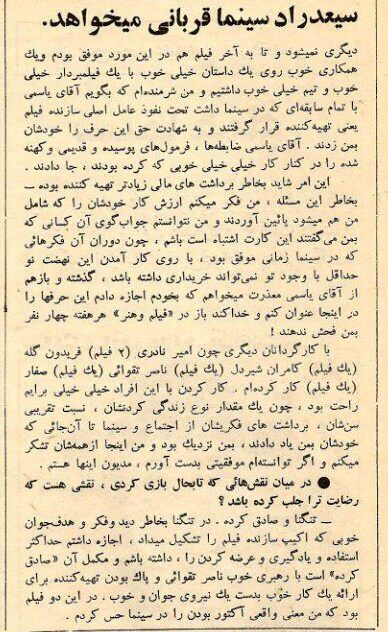 سیعدراد سینما قربانی میخواهد.
دیگری نمیشود و تا به آخر فیلم هم در این مورد موفق بودم و یک
همکاری خوب روی یک داستان خیلی خوب با یک فیلمبردار خیلی
خوب و تیم خیلی خوب داشتیم و من شرمنده‌ام که بگویم آقای یاسمی
با تمام سابقه‌ای که در سینما داشت تحت نفوذ عامل اصلی سازنده فیلم
یعنی تهیه‌کننده قرار گرفتند و به شهادت حق این حرف را خودشان
بمن زدند . آقای یاسمی ضابطه‌ها ، فرمول‌های پوسیده و قدیمی وکهنه
شده را در کنار کار خیلی خیلی خوبی که کرده بودند ، جا دادند .
این امر شاید بخاطر برداشت های مالی زیادتر تهیه کننده بوده ــ
بخاطر این مسئله ، من فکر میکنم ارزش کار خودشان را که شامل
من هم میشود پائین آوردند و من نتوانستم جواب‌گوی آن کسانی که
بمن می‌گفتند این کارت اشتباه است باشم ، چون دوران آن فکرهائی
که در سینما زمانی موفق بود ، با روی کار آمدن این نهضت نو
حداقل با وجود تو نمی‌تواند خریداری داشته باشد ، گذشته و بازهم
از آقای یاسمی معذرت میخواهم که بخودم اجازه دادم این حرفها را
در اینجا عنوان کنم و خداکند باز در «فیلم وهنر» هرهفته چهار نفر
بمن فحش ندهند !
با کارگردانان دیگری چون امیر نادری (۲ فیلم) فریدون گله
(یك فیلم) کامران شیردل (یك فیلم) ناصر تقوائی (یك فیلم) صفار
(یك فیلم) کار کرده‌ام . کار کردن با این افراد خیلی خیلی برایم
راحت بود ، چون یك مقدار نوع زندگی کردنشان ، نسبت تقریبی
سن‌شان ، برداشت های فکریشان از اجتماع و سینما تا آن‌جائی که
خودشان بمن یاد دادند ، بمن نزدیك بود و من اینجا ازهمه‌شان تشکر
میکنم و اگر توانسته‌ام موفقیتی بدست آورم ، مدیون اینها هستم .
● در میان نقش‌هائی که تابحال بازی کردی ، نقشی هست که
رضایت ترا جلب کرده باشد ؟
ــ تنگنا و صادق کرده . در تنگنا بخاطر دید وفکر و هدف‌جوان
خوبی که اکیپ سازنده فیلم را تشکیل میداد ، اجازه داشتم حداکثر
استفاده و یادگیری و عرضه کردن را ، داشته باشم و مکمل آن «صادق
کرده» است با رهبری خوب ناصر تقوائی و پاك بودن تهیه‌کننده برای
ارائه یك کار خوب بدست یك نیروی جوان و خوب . در این دو فیلم
بود که من معنی واقعی آکتور بودن را در سینما حس کردم .